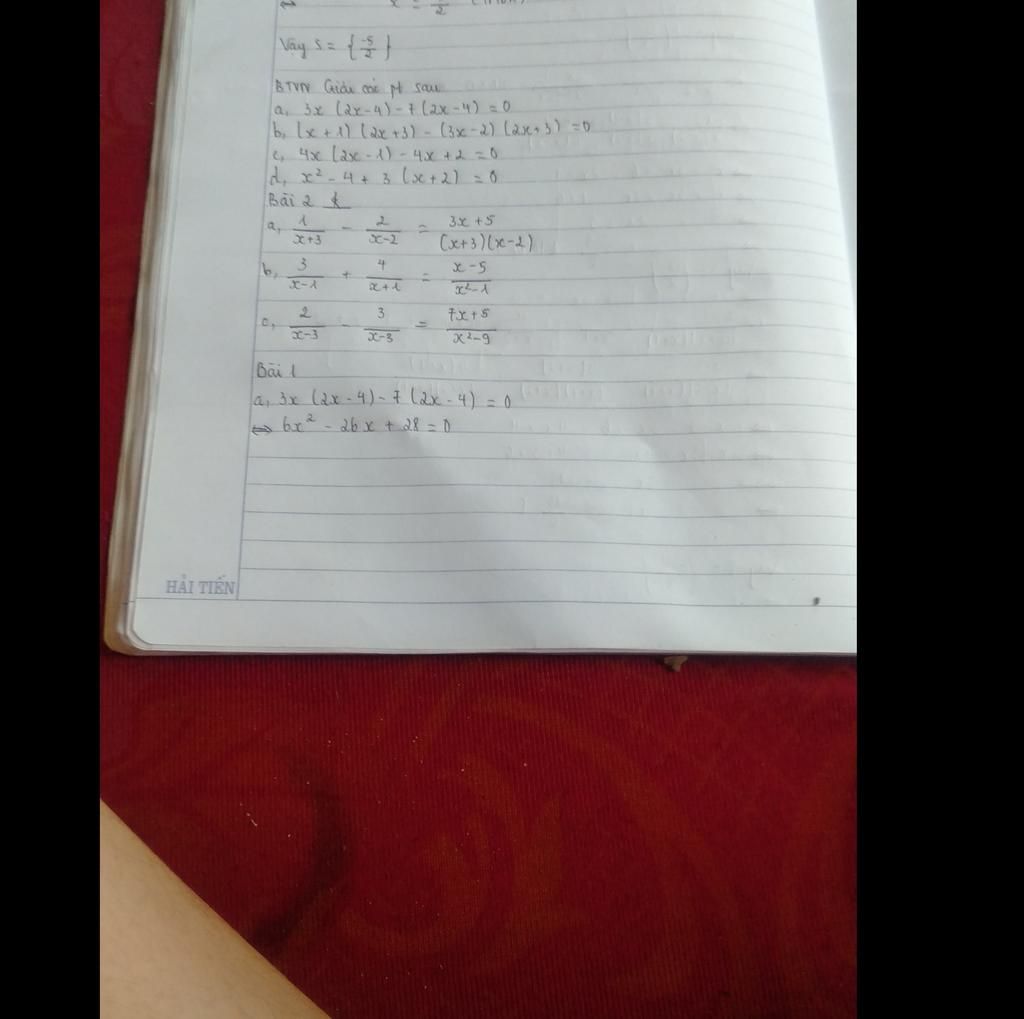 Vậy S = { -5/2 }
BTVN Giải các pt sau
a, 3x (2x-4) - 7 (2x-4) = 0
b, (x + 1) (2x+3) - (3x-2) (2x+3) = 0
c, 4x (2x-1) - 4x + 2 = 0
d, x² - 4 + 3 (x+2) = 0
Bài 2
a, 1/(x+3) - 2/(x-2) = (3x+5)/((x+3)(x-2))
b, 3/(x-1) + 4/(x+1) = (x-5)/(x²-1)
c, 2/(x-3) - 3/(x-3) = (7x+5)/(x²-9)
Bài 1
a, 3x (2x-4) - 7 (2x-4) = 0
⇔ 6x² - 26x + 28 = 0
HẢI TIẾN